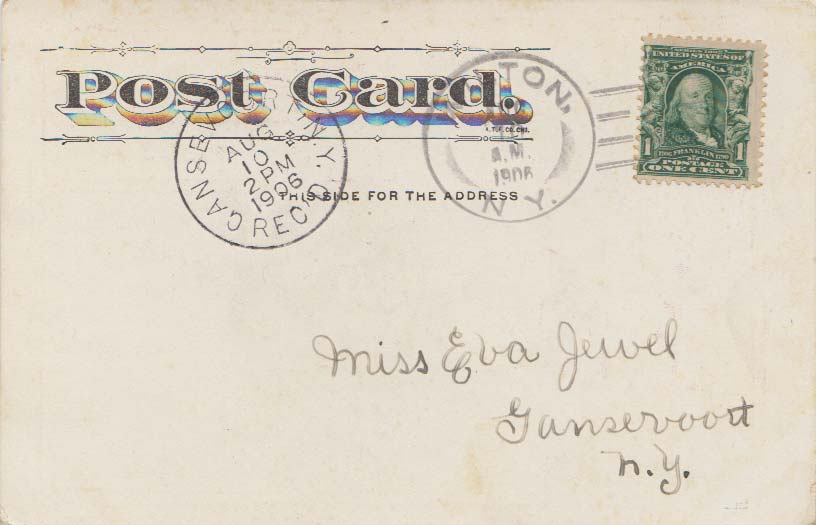 Post Card.
A. TUF. CO. CHI.
THIS SIDE FOR THE ADDRESS
N.Y.
AUG
10
2 PM
1906
REC'D.
TON,
A.M.
1906
N.Y.
SERIES 1902
UNITED STATES OF
AMERICA
1706 FRANKLIN 1790
1 POSTAGE 1
ONE CENT
Miss Eva Jewel
Gansevoort
N.Y.